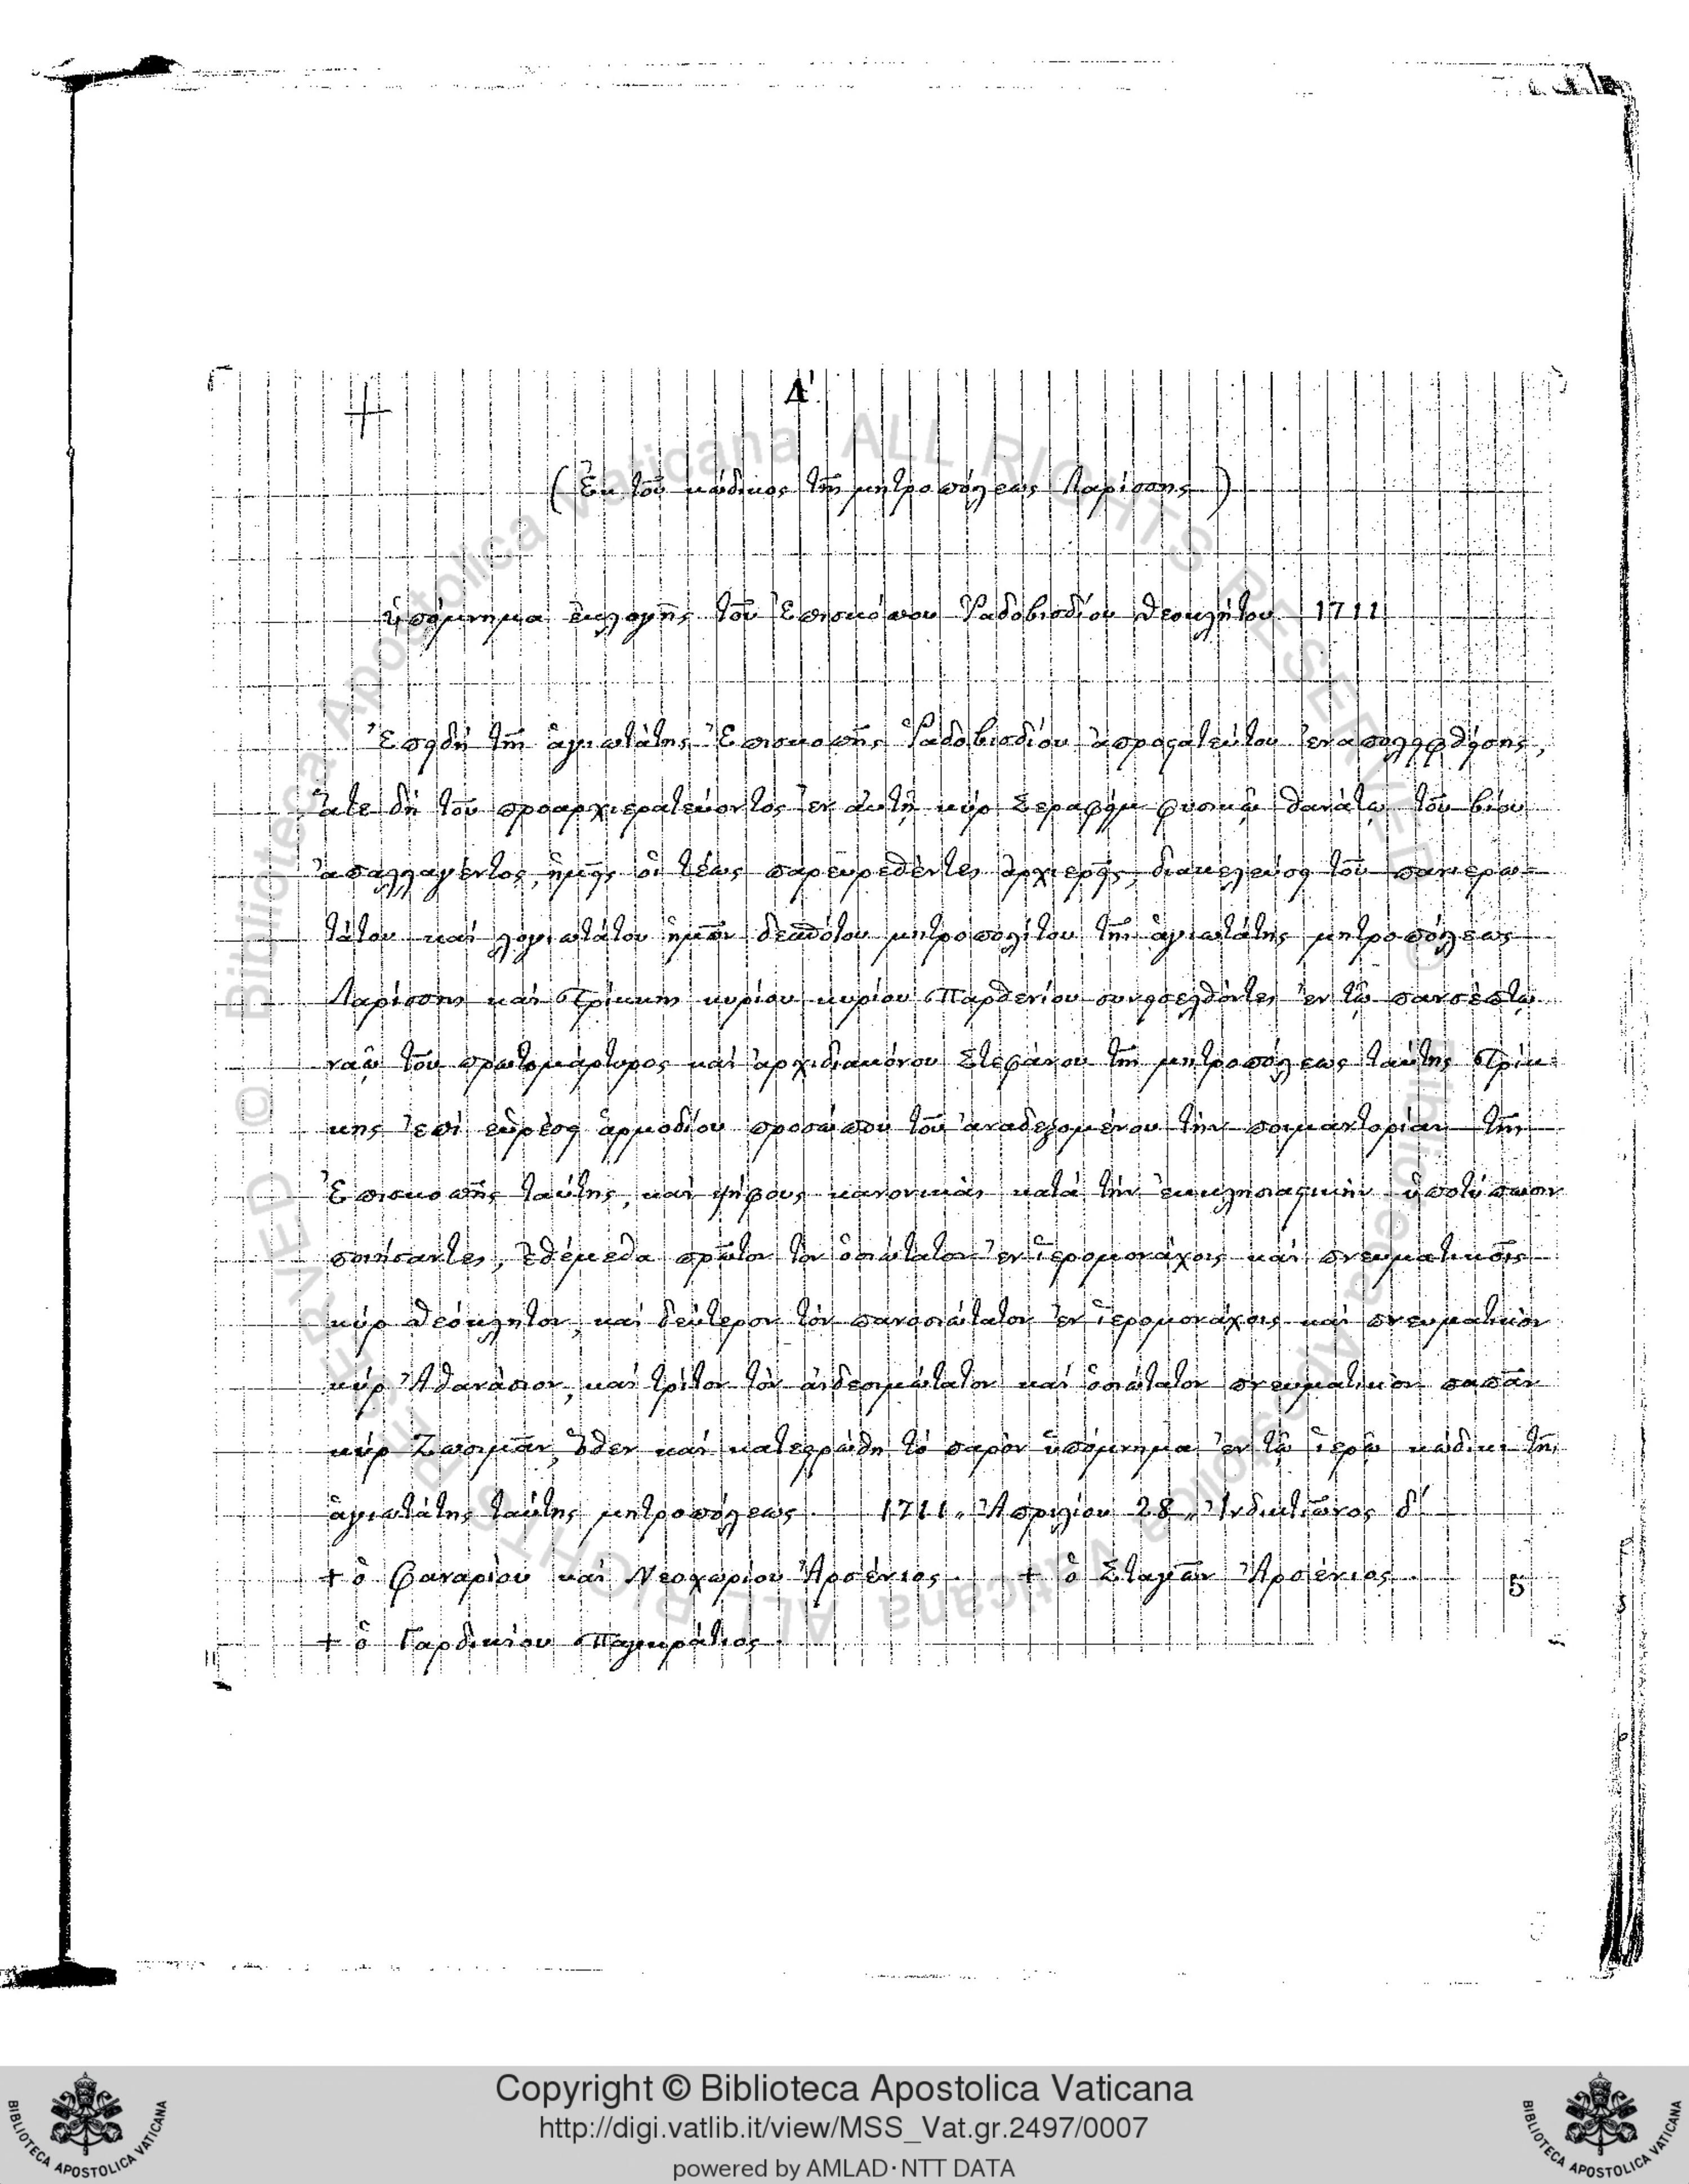 Δ'.
(Ἐκ τοῦ κώδικος τῆς μητροπόλεως Λαρίσσης)
ὑπόμνημα ἐκλογῆς τοῦ Ἐπισκόπου Ῥαδοβισδίου Θεοκλήτου 1711
Ἐπειδή τῆς ἁγιωτάτης Ἐπισκοπῆς Ῥαδοβισδίου ἀπροστατεύτου ἐναπολειφθείσης,
ἅτε δή τοῦ προαρχιερατεύοντος ἐν αὐτῇ κύρ Σεραφείμ φυσικῷ θανάτῳ τοῦ βίου
ἀπαλλαγέντος, ἡμεῖς οἱ τέως παρευρεθέντες ἀρχιερεῖς, διακελεύσει τοῦ πανιερω-
τάτου καί λογιωτάτου ἡμῶν δεσπότου μητροπολίτου τῆς ἁγιωτάτης μητροπόλεως
Λαρίσσης καί Τρίκκης κυρίου κυρίου Παρθενίου συνεισελθόντες ἐν τῷ πανσέπτῳ
ναῷ τοῦ πρωτομάρτυρος καί ἀρχιδιακόνου Στεφάνου τῆς μητροπόλεως ταύτης Τρίκ-
κης ἐπί εὑρέσει ἁρμοδίου προσώπου τοῦ ἀναδεξομένου τήν ποιμαντορίαν τῆς
Ἐπισκοπῆς ταύτης, καί ψήφους κανονικάς κατά τήν ἐκκλησιαστικήν ὑποτύπωσιν
ποιήσαντες, ἐθέμεθα πρῶτον τόν ὁσιώτατον ἐν ἱερομονάχοις καί πνευματικοῖς
κύρ Θεόκλητον, καί δεύτερον τόν πανοσιώτατον ἐν ἱερομονάχοις καί πνευματικόν
κύρ Ἀθανάσιον, καί τρίτον τόν αἰδεσιμώτατον καί ὁσιώτατον πνευματικόν παπᾶν
κύρ Ζωσιμᾶν, ὅθεν καί κατεστρώθη τό παρόν ὑπόμνημα ἐν τῷ ἱερῷ κώδικι τῆς
ἁγιωτάτης ταύτης μητροπόλεως. 1711, Ἀπριλίου 28, Ἰνδικτιῶνος δ'
+ ὁ Φαναρίου καί Νεοχωρίου Ἀρσένιος. + ὁ Σταγῶν Ἀρσένιος.
5
+ ὁ Γαρδικίου Παγκράτιος.
Copyright © Biblioteca Apostolica Vaticana
http://digi.vatlib.it/view/MSS_Vat.gr.2497/0007
powered by AMLAD·NTT DATA
BIBLIOTECA APOSTOLICA VATICANA
BIBLIOTECA APOSTOLICA VATICANA